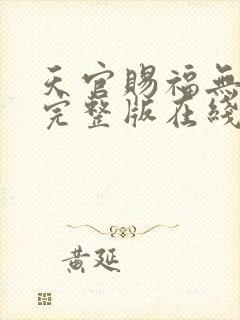 天官賜福無
完整版在綫
黃延